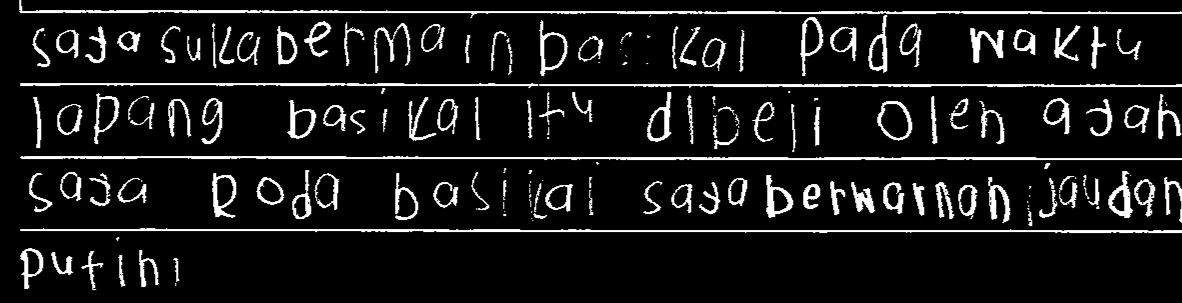 saya suka bermain basikal pada waktu
lapang basikal itu dibeli oleh ayah
saya Roda basikal saya berwarnah ijau dan
putih